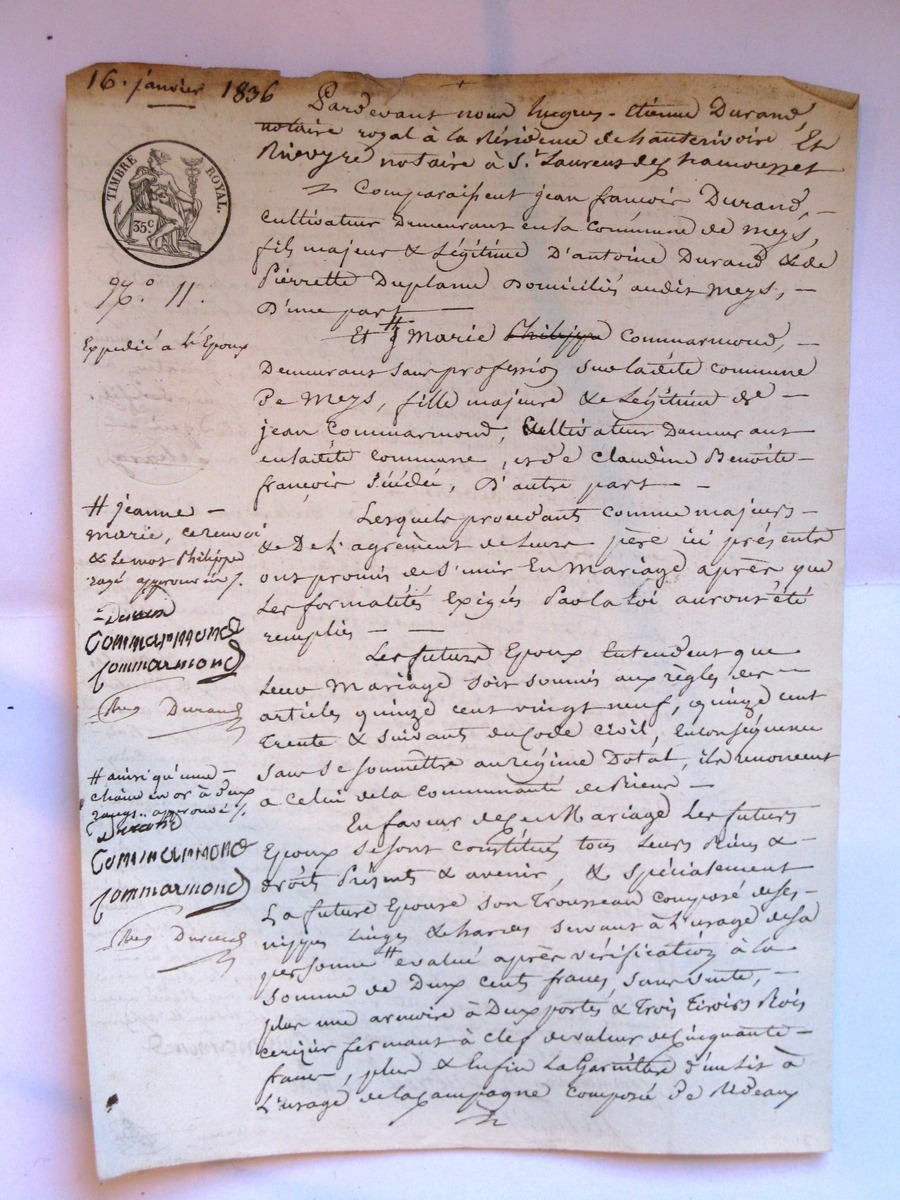 16. janvier 1836
TIMBRE ROYAL.
35c
No. 11.
Expedié à l'Epoux
Pardevant nous Jacques-Etienne Durand,
notaire royal à la Résidence de hauterivoire, Et
notaire à St. Laurent de Chamousset
Comparaissent jean françois Durand,
cultivateur Demeurant en la Commune de meys,
fils majeur & Légitime D'antoine Durand & de
Pierrette Domiciliés audit meys,
D'une part
Et # Marie Philippe Commarmond,
Demeurant sans profession sur ladite commune
De Meys, fille majeure & Légitime de
jean Commarmond, Cultivateur Demeurant
en ladite commune, et de Claudine Benoite
françoise D'autre part
Lesquels procedants comme majeurs
& De L'agrément de Leurs père ici présents
ont promis de S'unir En Mariage après que
Les formalités Exigés Par la Loi auront été
remplies
Les futurs Epoux Entendent que
Leur Mariage soit soumis aux règles des
articles quinze cent vingt neuf, quinze cent
trente & suivants du Code civil, En conséquence
sans se soumettre au régime Dotal, ils renoncent
a celui de la communauté de Biens
En faveur de Ce Mariage Les futurs
Epoux se sont constitués tous Leurs Biens &
droits Présents & avenir, & spécialement
La future Epouse son Trousseau composé de ses
nippes Linges & hardes servant à L'usage de sa
personne # evalué après vérification à la
somme de Deux cents francs,
plus une armoire à Deux portes & Trois tiroirs Bois
cerisier fermant à clef de valeur de Cinquante
francs, plus & Enfin La Garniture d'un Lit à
L'usage de la Campagne composée De Rideaux
# jeanne
marie, ce renvoi
& Le mot Philippe
rayé approuvés /.
Durand
Commarmond
Commarmond
Durand
# ainsi qu'une
chaîne en or à Deux
rangs.. approuvé /.
Durand
Commarmond
Commarmond
Durand